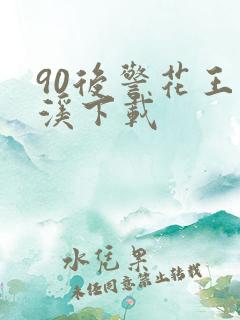 90後警花王
溪下載
水凭果
未经同意禁止转载